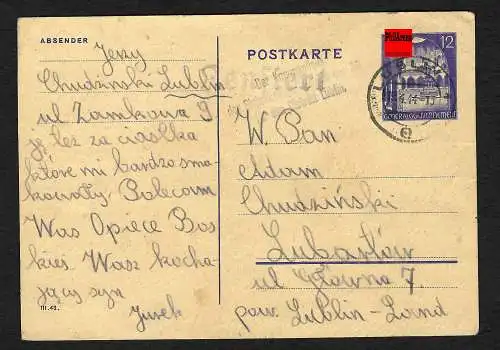 ABSENDER
Jerzy
Chudzinski Lublin
ul Zamkowa 9
ję też za ciastka
które mi bardzo sma-
kowały Polecam
Was Opiece Bos
kiej Wasz kocha-
jący syn
Jurek
III.43.
POSTKARTE
12
LUBLIN
GENERALGOUVERNEMENT
W. Pan
Adam
Chudziński
Lubartów
ul 7.
pow. Lublin-Land